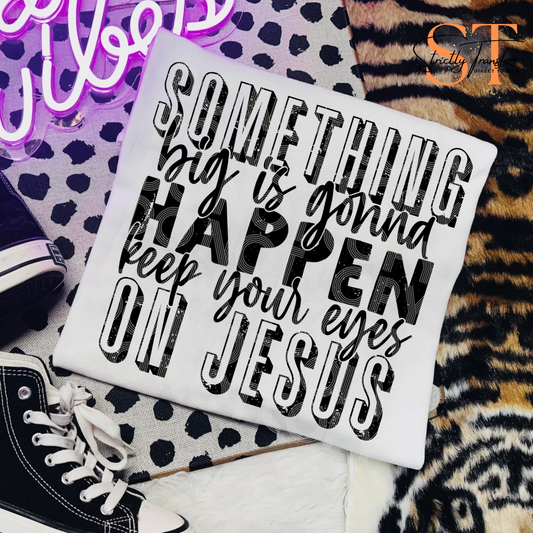 vibes
ST
Strictly Transfer
DIRECT TO
SOMETHING
big is gonna
HAPPEN
keep your eyes
ON JESUS